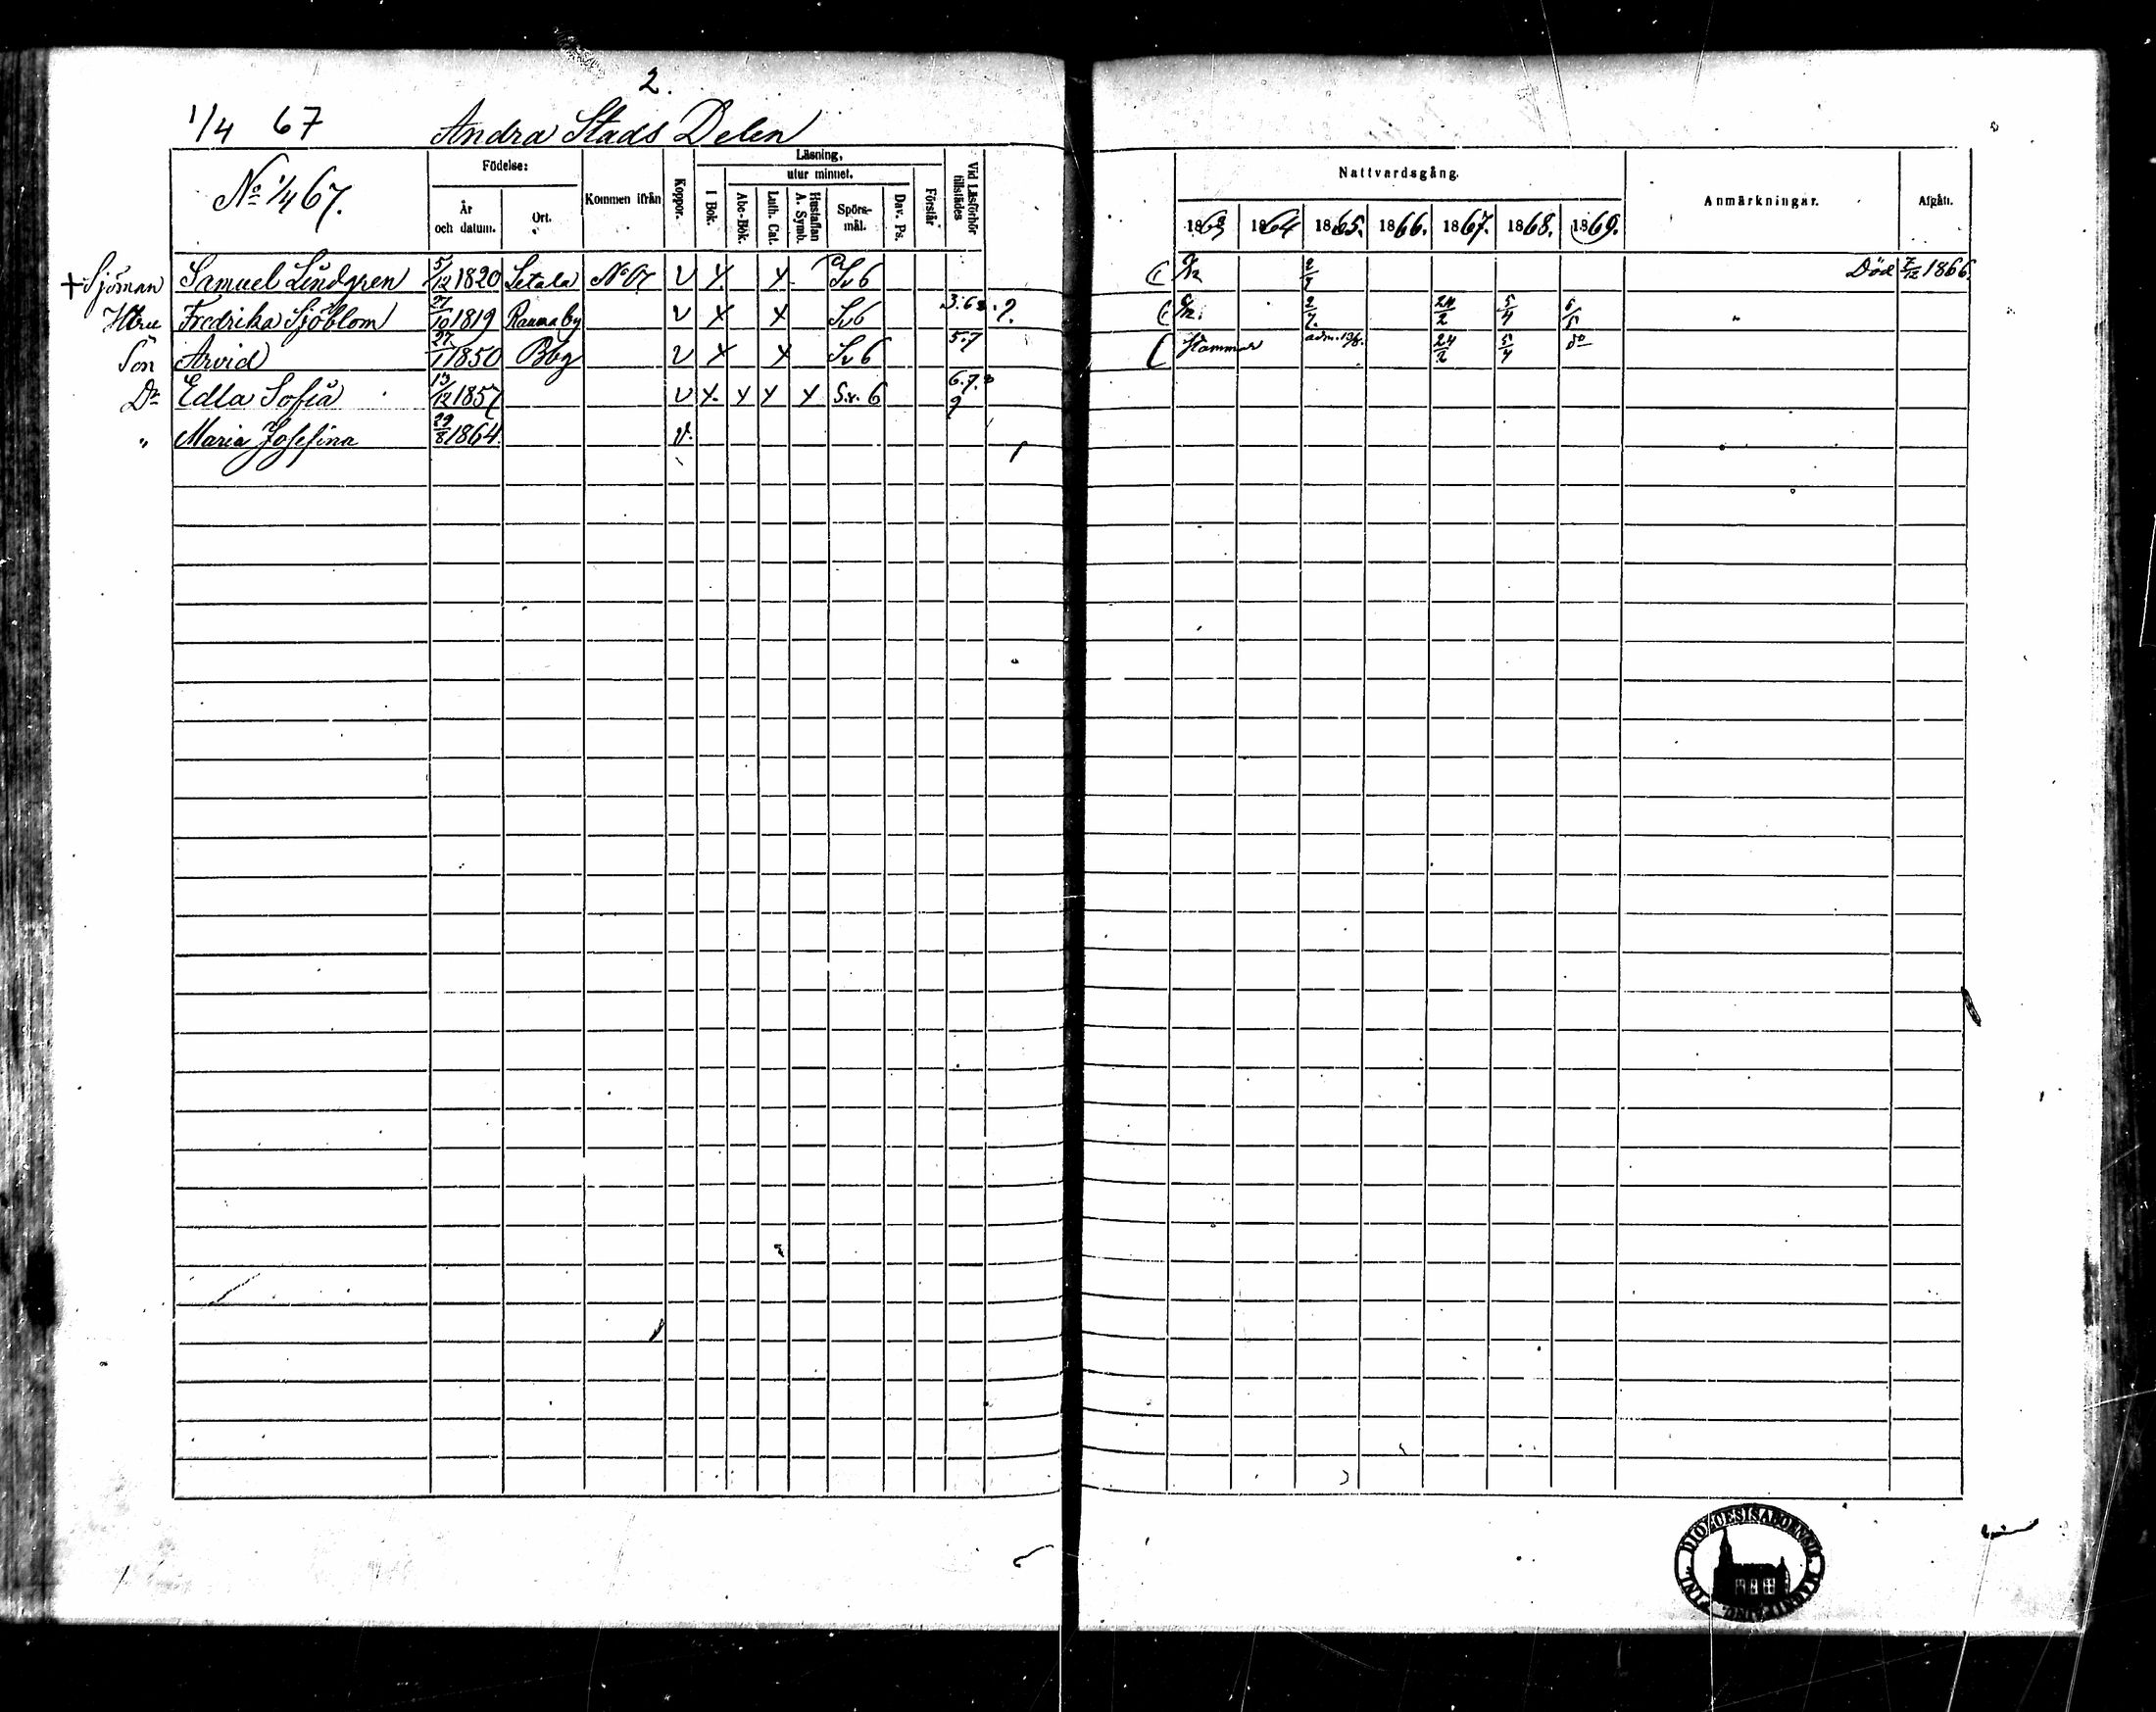 2.
1/4 67 Andra Stads Delen
No 1/4 67.
Födelse:
År och datum.
Ort.
Kommen ifrån
Koppor.
Läsning,
utur minnet.
I Bok.
Abc-Bok.
Luth. Cat.
Hustaflan A. Symb.
Spörs-mål.
Dav. Ps.
Förstår
Vid Läsförhör tillstädes
Nattvardsgång.
1863 1864 1865. 1866. 1867. 1868. 1869.
Anmärkningar.
Afgått.
+ Sjöman Samuel Lindgren 5/12 1820 Letala No 67 v x x Sv 6 2/7 Död 7/12 1866
Hstru Fredrika Sjöblom 7/10 1819 Rauma by v x x Sv 6 3. 6 8. 9. 2/7. 24/2 5/4 "
Son Arvid 27/1 1850 Bbg v x x Sv 6 5. 7 adm. 24/2 5/4 do
Dr Edla Sofia 13/12 1857 v x x x x S.v. 6 6. 7. 8 9
" Maria Josefina 29/8 1864. v.
DIOECESIS ABOENSIS